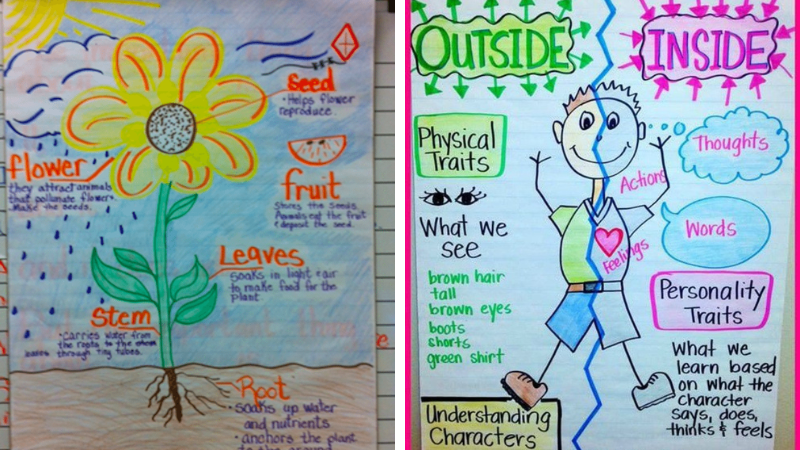 Seed
• Helps flower
reproduce.
flower
they attract animals
that pollinate flowers
Make the seeds.
fruit
Stores the seeds.
Animals eat the fruit
& deposit the seed.
Leaves
soaks in light & air
to make food for the
plant
Stem
• Carries water from
the roots to the
through tiny tubes.
Root
• soaks up water
and nutrients
• anchors the plant
to the ground
OUTSIDE
INSIDE
Physical
Traits
Thoughts
Actions
What we
see
Words
Feelings
brown hair
tall
brown eyes
boots
shorts
green shirt
Personality
Traits
What we
learn based
on what the
character
says, does,
thinks & feels
Understanding
Characters